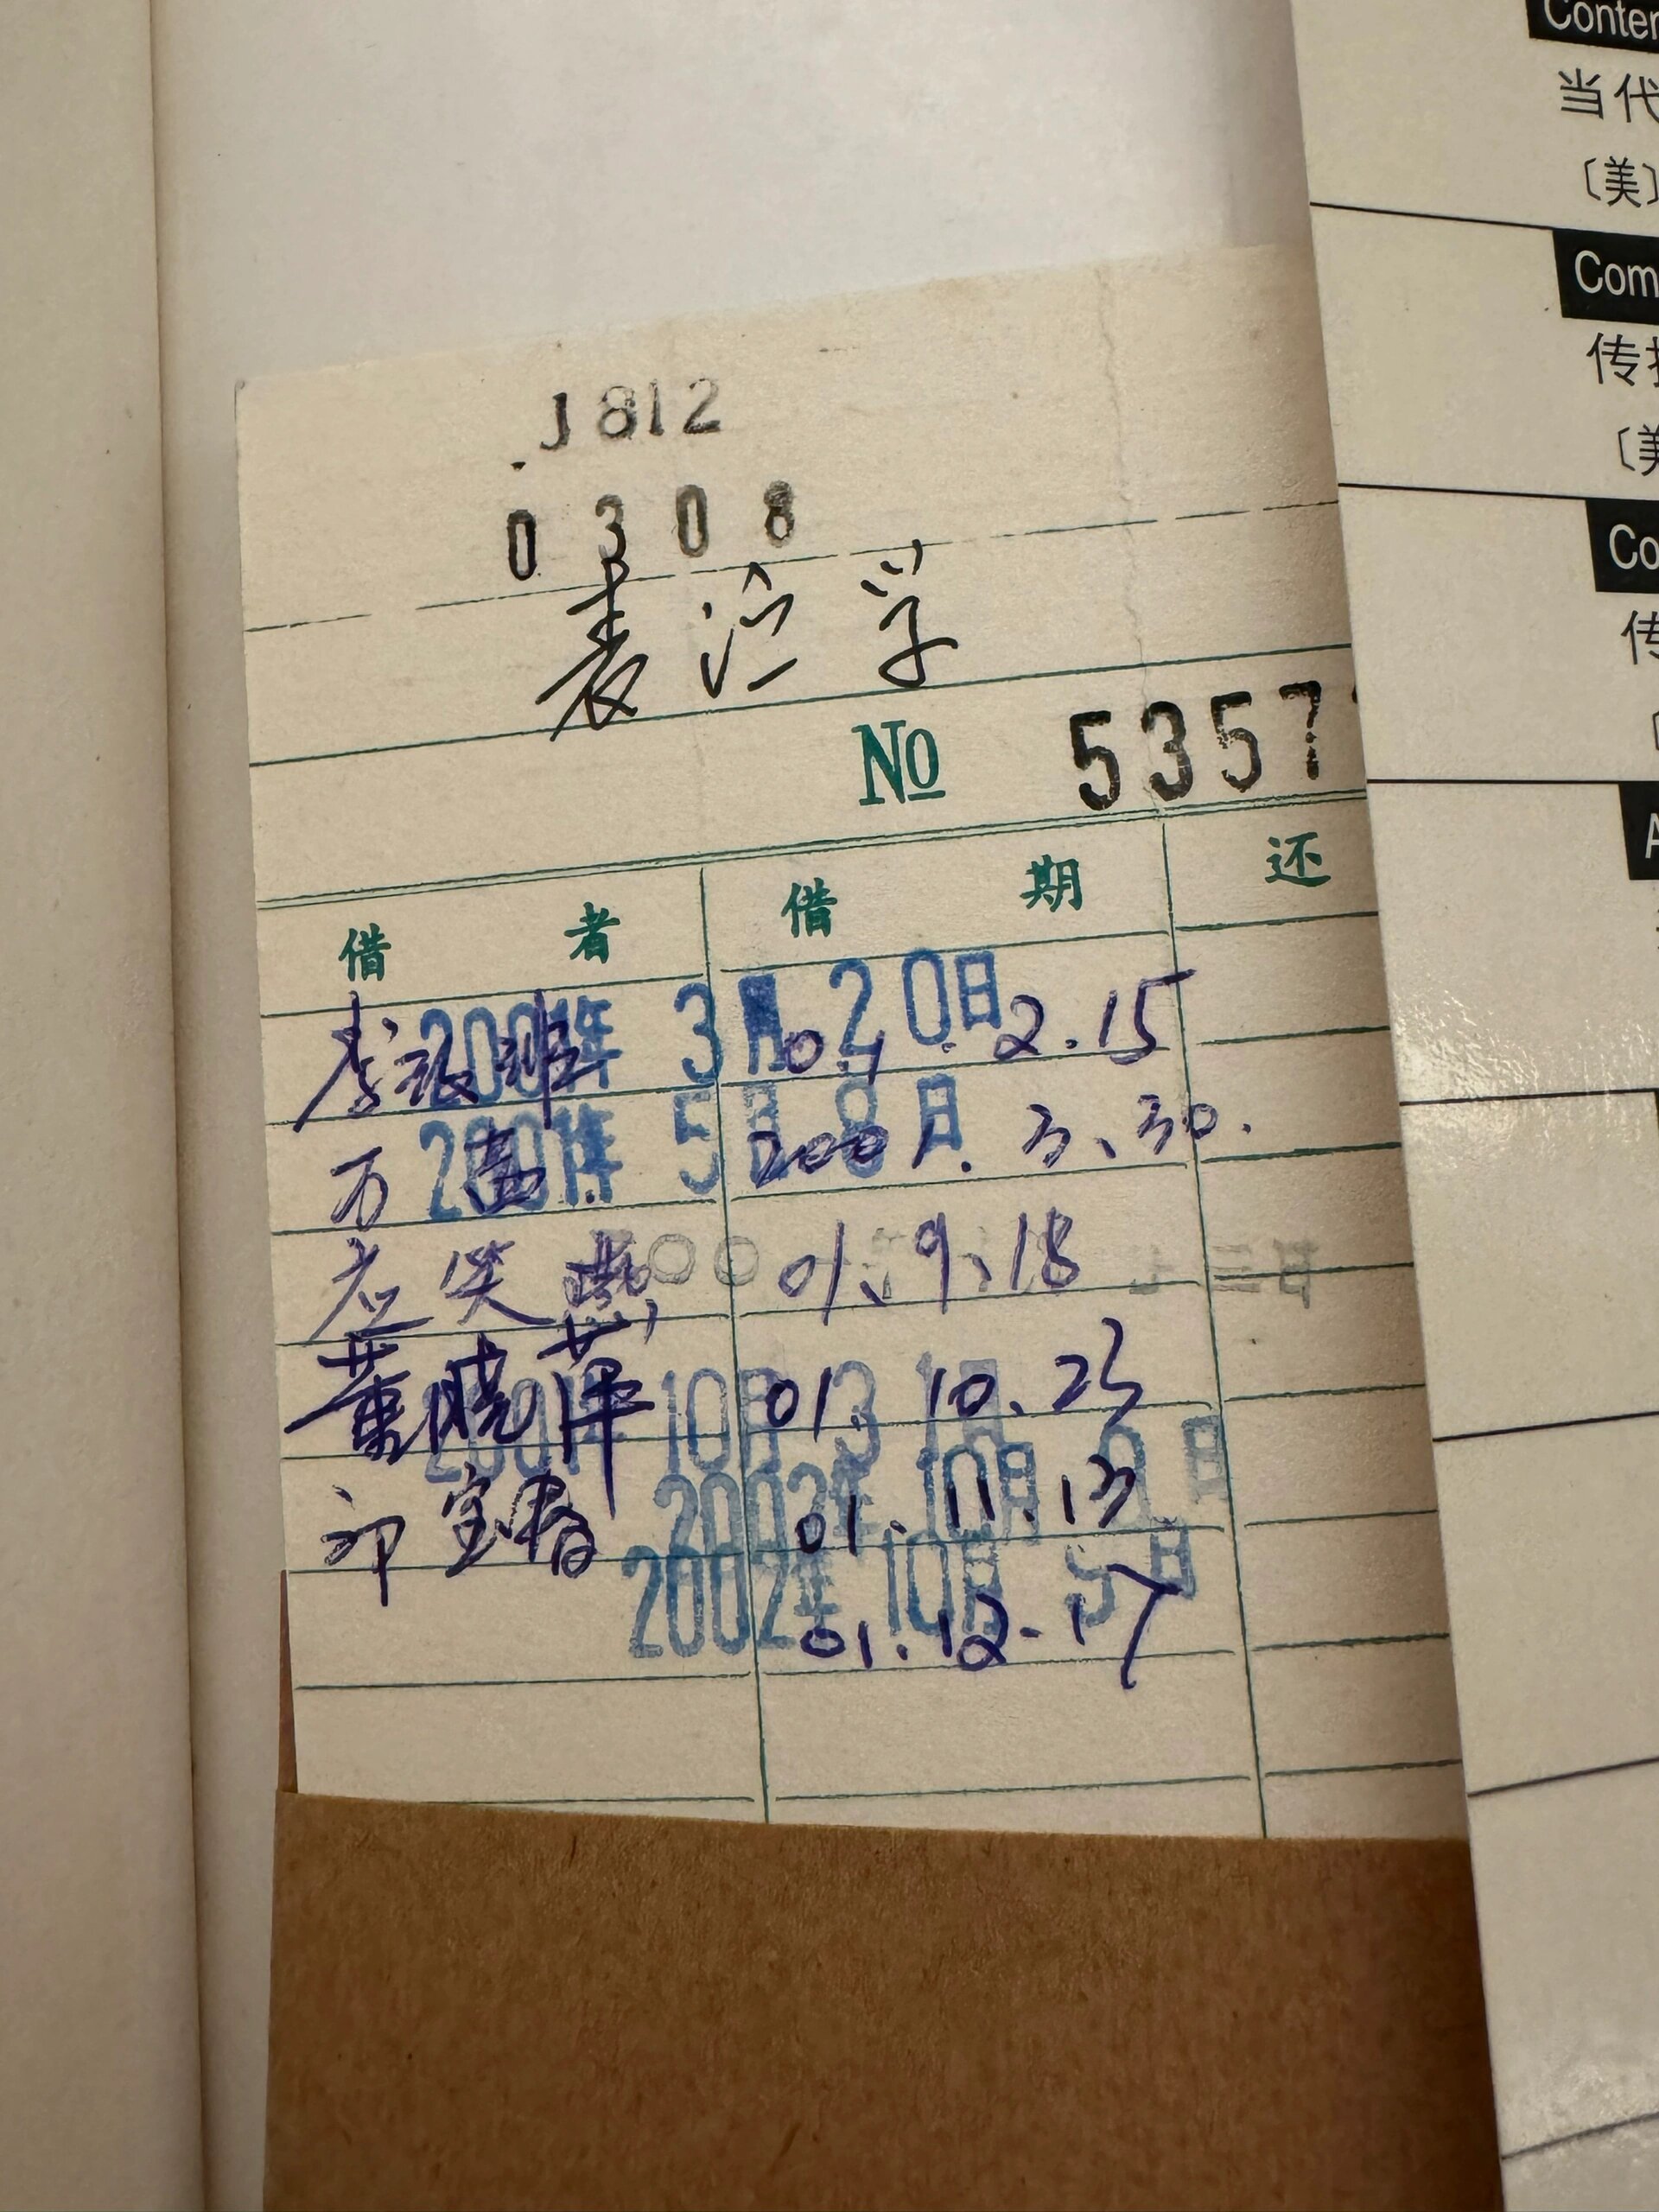 J812
0308
表演学
No 5357
借者 借期 还
2001年 3月20日
01.2.15
2001年 5月8日
万
2001.3.30.
应笑燕
01.9.18
2001年10月31日
董晓萍
01.10.23
2002年10月
01.11.13
2002年10月5日
01.12.17
Conter
当代
〔美〕
Com
传播
〔美
Co
传
A